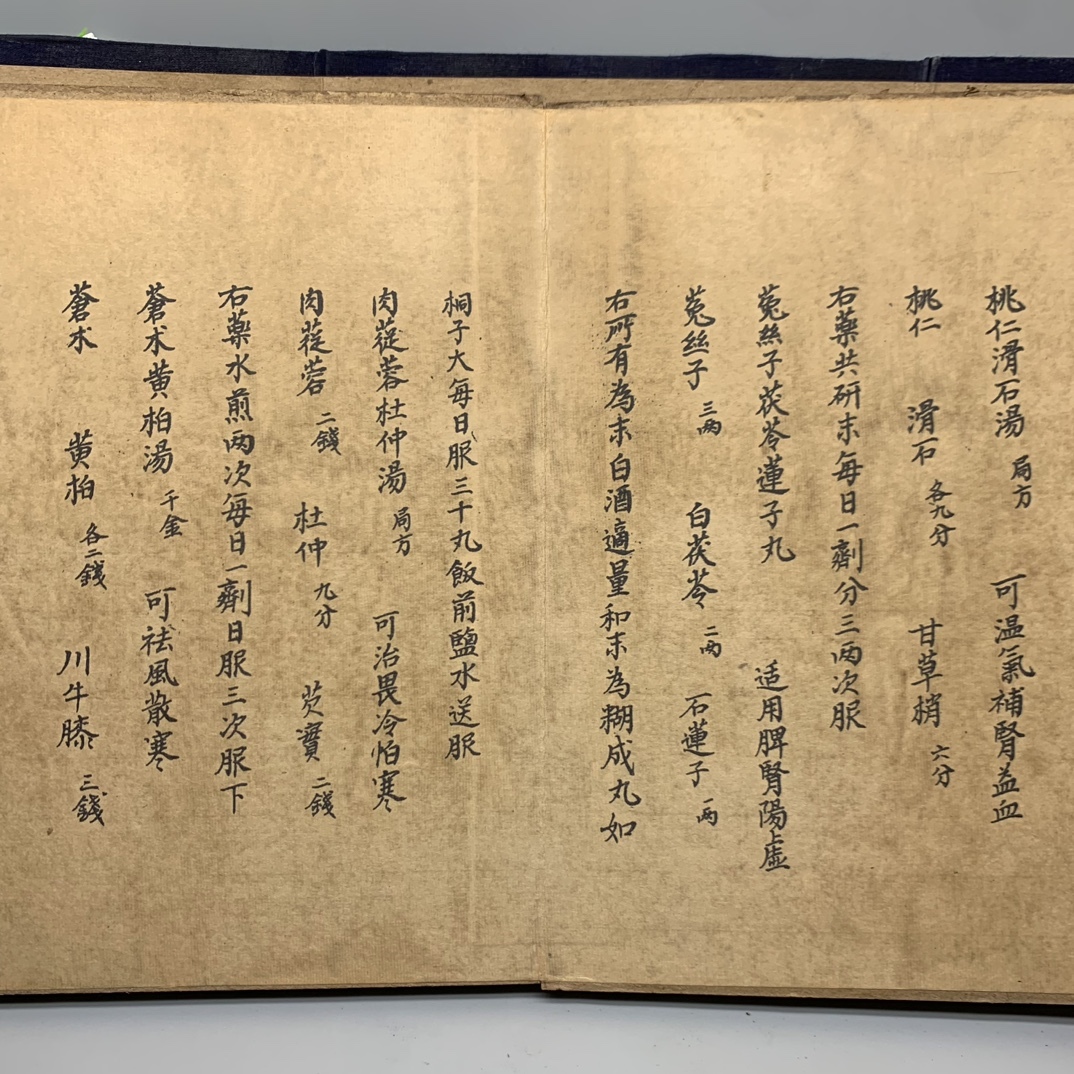 桃仁滑石湯 局方 可温氣補腎益血
桃仁 滑石 各九分 甘草梢 六分
右藥共研末每日一劑分三两次服
菟絲子茯苓蓮子丸 适用脾腎陽虛
菟丝子 三两 白茯苓 二两 石蓮子 一两
右所有為末白酒適量和末為糊成丸如
桐子大每日服三十丸飯前鹽水送服
肉蓯蓉杜仲湯 局方 可治畏冷怕寒
肉蓯蓉 二錢 杜仲 九分 芡實 二錢
右藥水煎两次每日一劑日服三次服下
蒼术黄柏湯 千金 可祛風散寒
蒼术 黄柏 各二錢 川牛膝 三錢